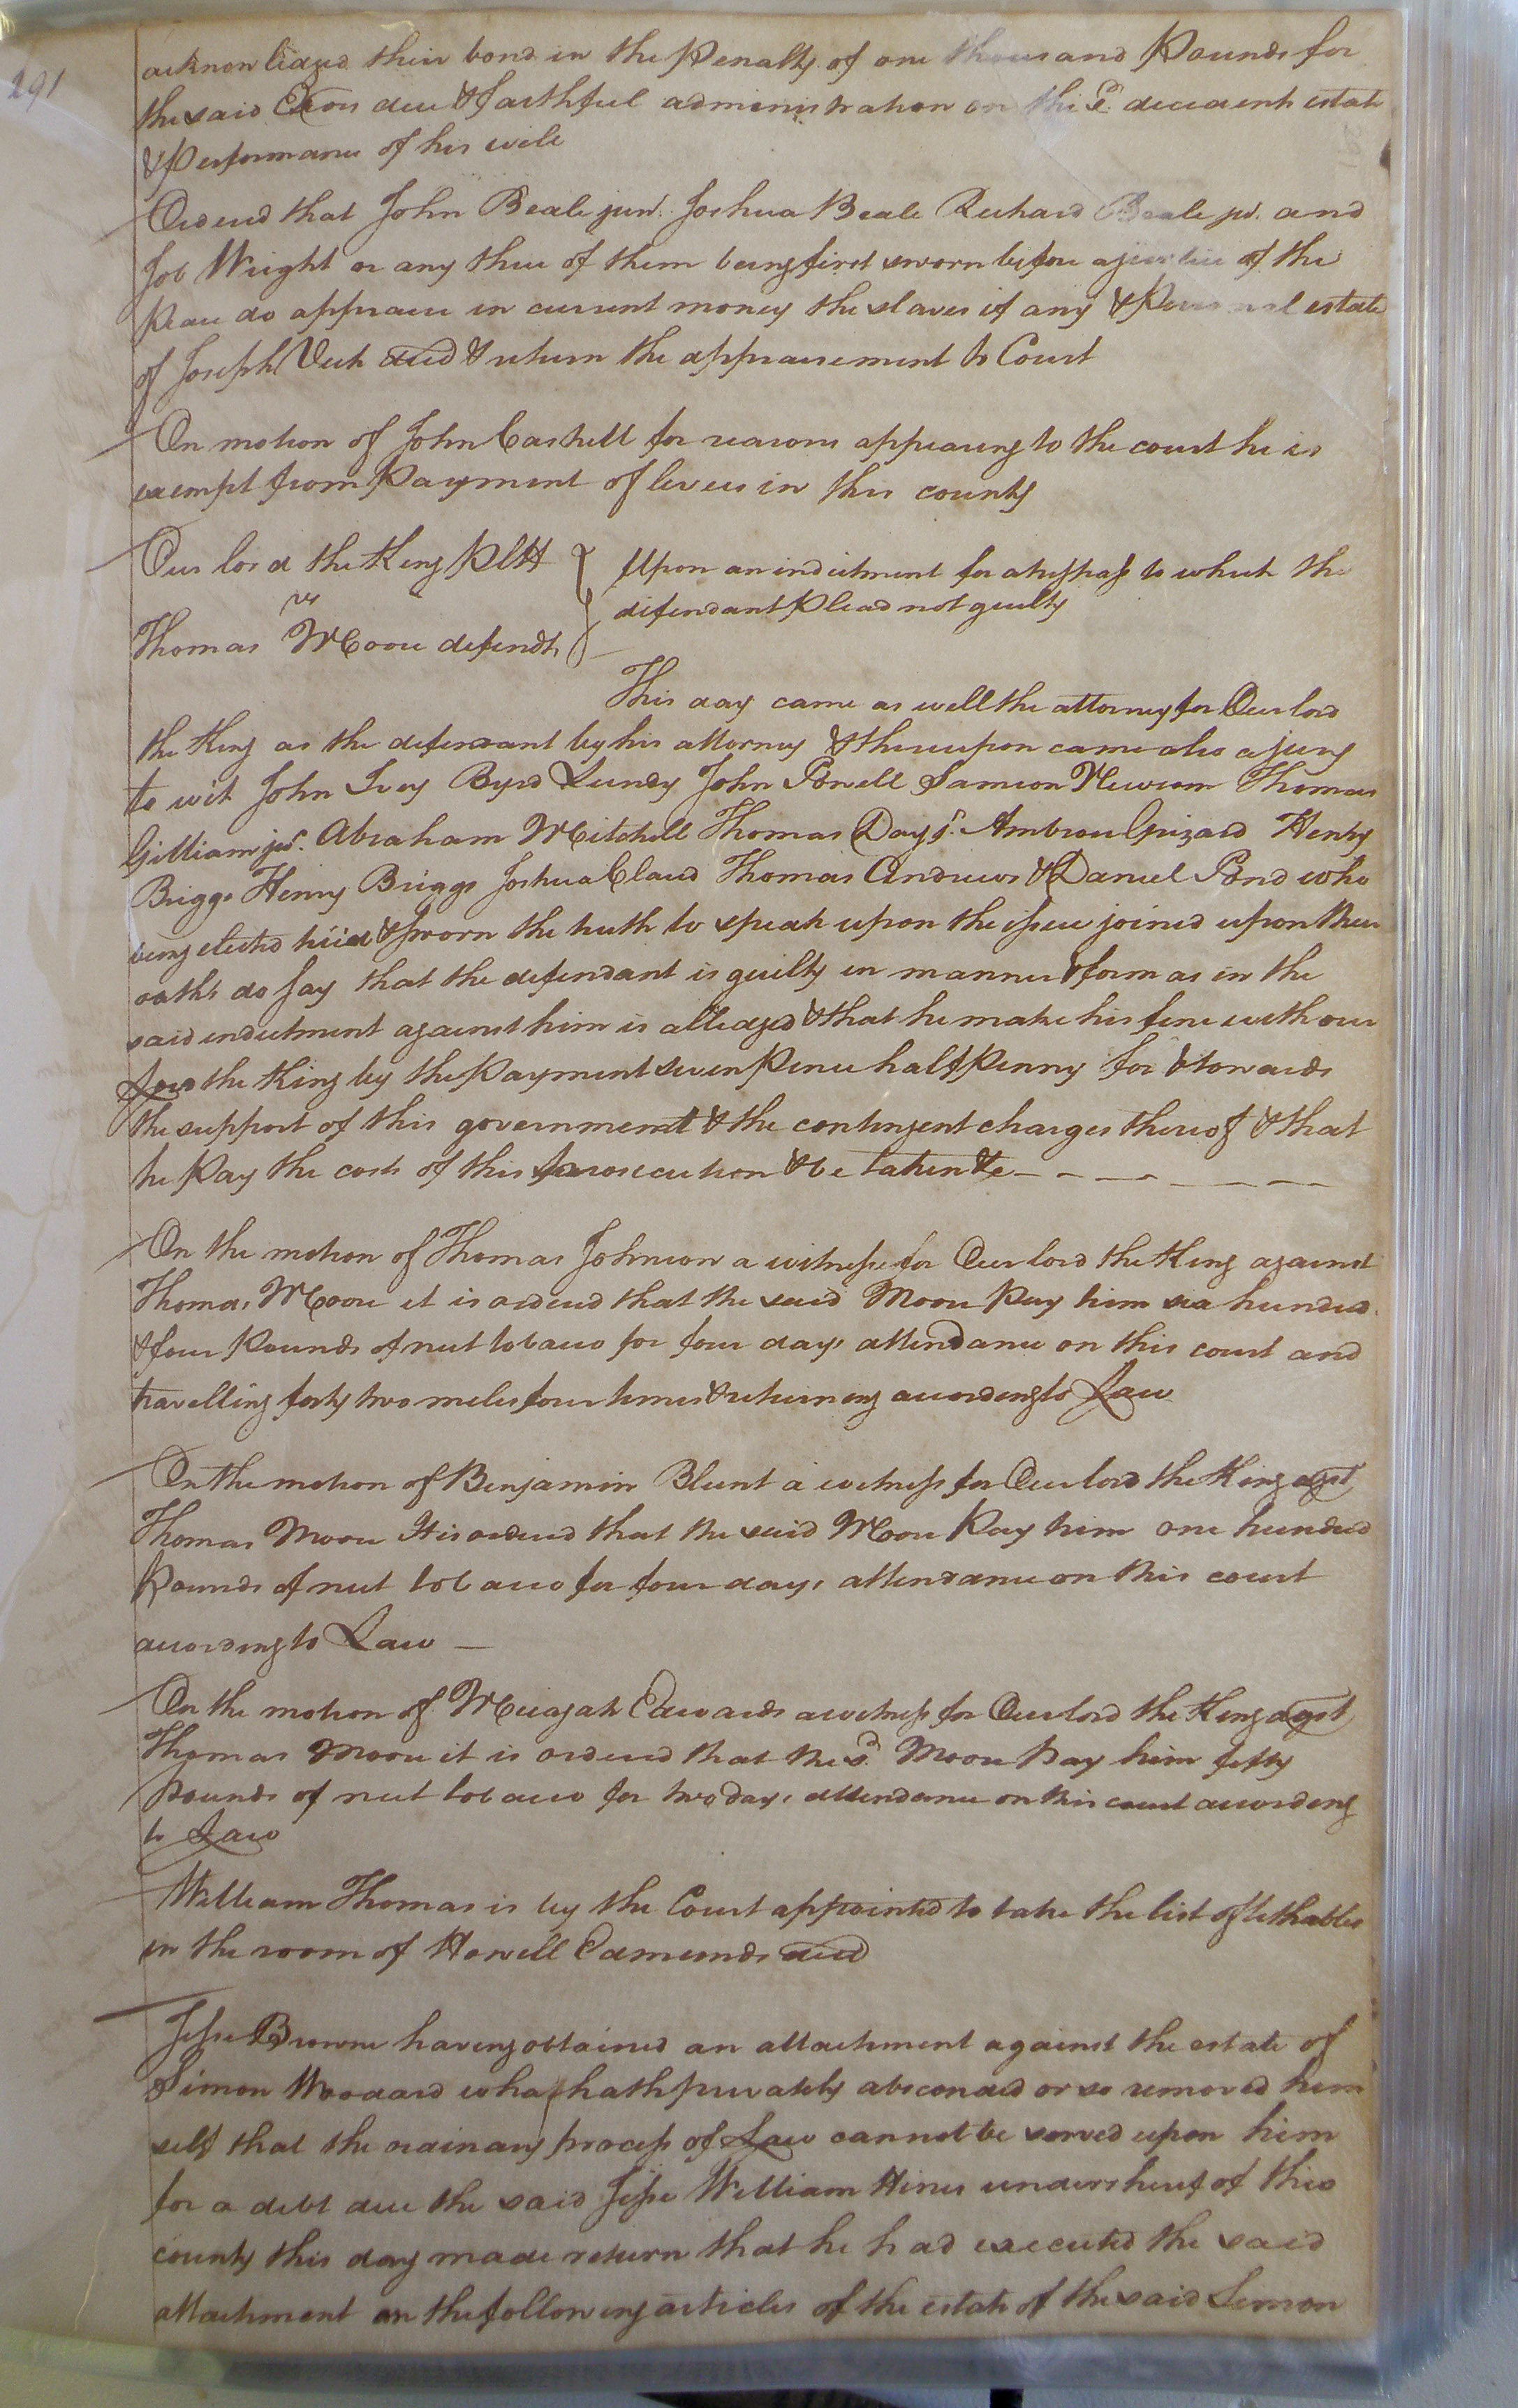 291
acknowlidged their bond in the Penalty of one thousand Pounds for
the said Exors due & faithful administration on the sd. decedents estate
& Performance of his will
Ordered that John Beale junr. Joshua Beale Richard Beale jr. and
Job Wright or any three of them being first sworn before a justice of the
Peace do appraise in current money the slaves if any & Personal estate
of Joseph Vick decd & return the appraisement to Court
On motion of John Cashell for reasons appearing to the court he is
exempt from Payment of levies in this county
Our lord the King Pltf
vs
Thomas Moore defendt.
Upon an indictment for a trespass to which the
defendant Plead not guilty
This day came as well the attorney for Our lord
the King as the defendant by his attorney & thereupon came also a jury
to wit John Ivey Byrd Lundy John Powell Samson Newsom Thomas
Gilliam jur. Abraham Mitchell Thomas Day sr. Ambrose Grizard Henry
Briggs Henry Briggs Joshua Claud Thomas Andrews & Daniel Pond who
being elected tried & sworn the truth to speak upon the issue joined upon their
oaths do say that the defendant is guilty in manner & form as in the
said indictment against him is alledged & that he make his fine with our
Lord the King by the Payment seven Pence half Penny for & towards
the support of this government & the contingent charges thereof & that
he Pay the costs of this prosecution & be taken &c
On the motion of Thomas Johnson a witness for Our lord the King against
Thomas Moore it is ordered that the said Moore Pay him six hundred
& four Pounds of nett tobacco for four days attendance on this court and
travelling forty two miles four times & returning according to Law
On the motion of Benjamin Blunt a witness for Our lord the King agst
Thomas Moore It is ordered that the said Moore Pay him one hundred
Pounds of nett tobacco for four days attendance on this court
according to Law
On the motion of Micajah Edwards a witness for Our lord the King agst
Thomas Moore it is ordered that the sd. Moore Pay him fifty
Pounds of nett tobacco for two days attendance on this court according
to Law
William Thomas is by the Court appointed to take the list of tithables
in the room of Howell Edmunds decd
Jesse Browne having obtained an attachment against the estate of
Simon Woodard who hath privately absconded or so removed him
self that the ordinary process of Law cannot be served upon him
for a debt due the said Jesse William Hines undersherif of this
county this day made return that he had executed the said
attachment on the following articles of the estate of the said Simon